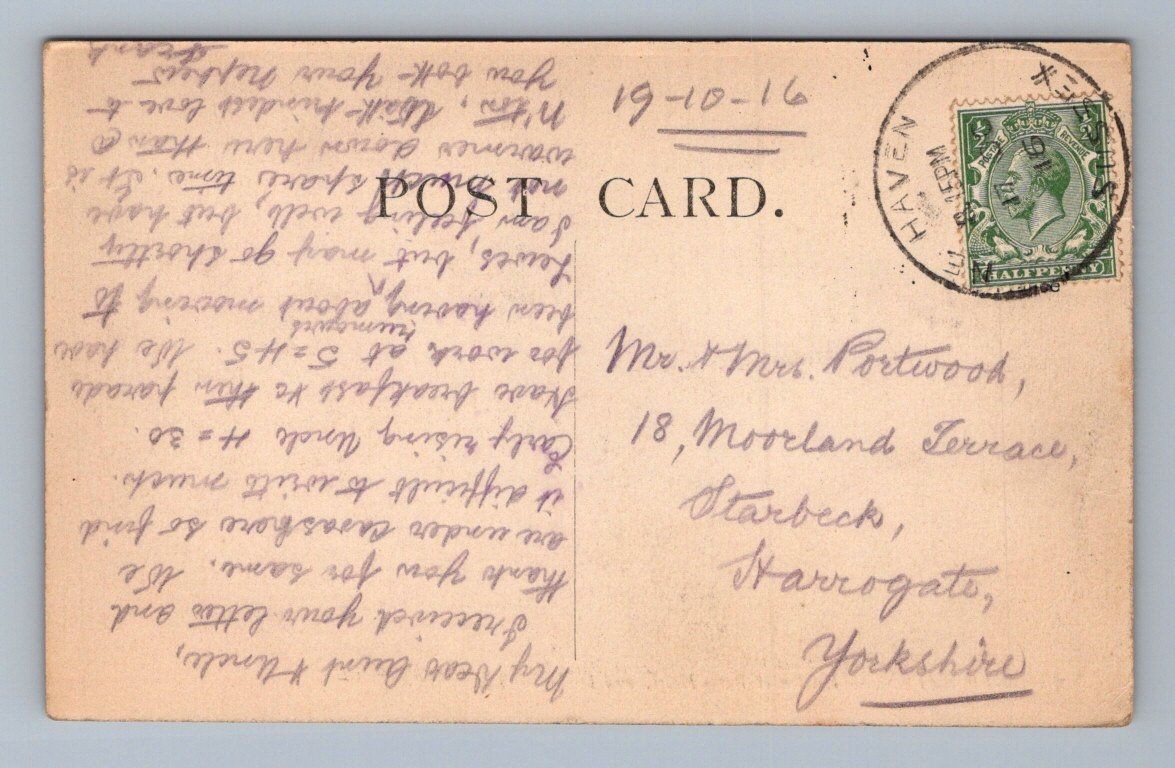 POST CARD.
16-10-19
N HAVEN
SUSSEX
8 15 PM
17
15
POSTAGE REVENUE
HALFPENNY
Mr. & Mrs. Portwood,
18, Moorland Terrace,
Starbeck,
Harrogate,
Yorkshire
My Dear Aunt & Uncle,
I received your letter and
thank you for same. We
are under canvas here so find
it difficult to write much.
Early rising Uncle 4=30.
Have breakfast & then parade
for work at 5=45. We have
been having rumours about moving to
Lewes, but may go shortly
I am feeling well, but have
not much spare time. It is
warmer down here than @
N'ton, With kindest love to
you both Your Nephew
Frank